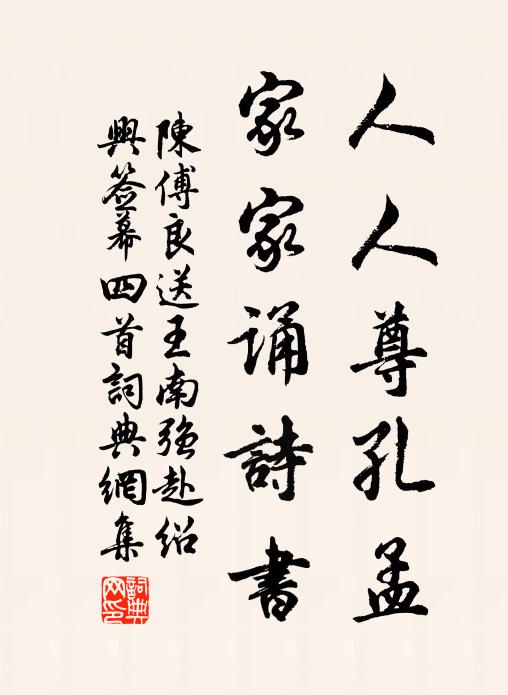 人人尊孔孟
家家誦詩書
陳傅良送王南强赴紹
興簽幕四首詞典網集
詞典網印